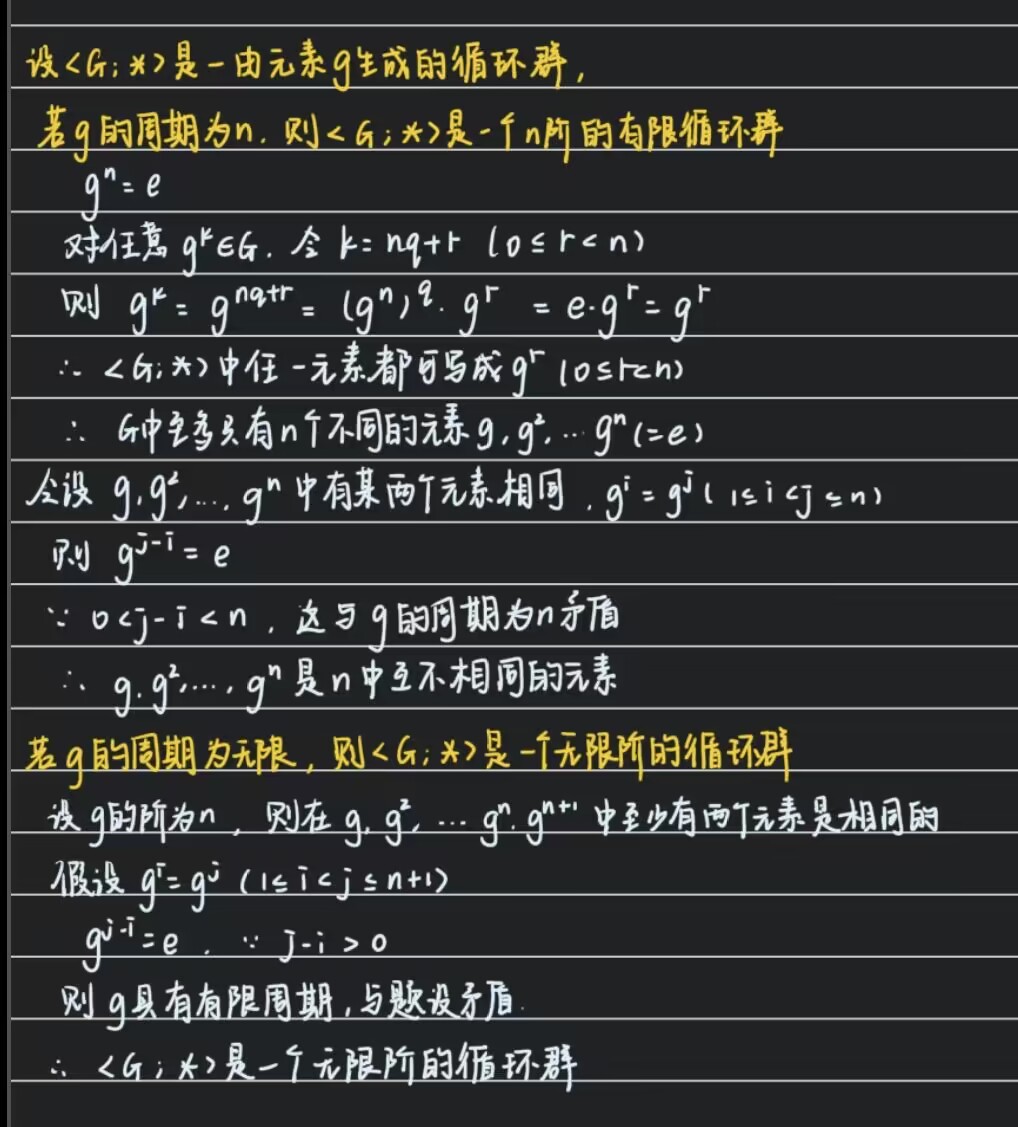 设<G;*>是一由元素g生成的循环群,
若g的周期为n.则<G;*>是一个n阶的有限循环群
gⁿ=e
对任意gᵏ∈G.令k=nq+r (0≤r<n)
则 gᵏ=g^{nq+r}=(gⁿ)^q·g^r =e·g^r=g^r
∴ <G;*>中任一元素都可写成g^r (0≤r<n)
∴ G中至多只有n个不同的元素g,g²,…gⁿ(=e)
令设 g,g²,…,gⁿ中有某两个元素相同,g^i=g^j(1≤i<j≤n)
则 g^{j-i}=e
∵ 0<j-i<n,这与g的周期为n矛盾
∴ g.g²,…,gⁿ是n中互不相同的元素
若g的周期为无限,则<G;*>是一个无限阶的循环群
设g的阶为n,则在g,g²,…gⁿ.g^{n+1}中至少有两个元素是相同的
假设g^i=g^j (1≤i<j≤n+1)
g^{j-i}=e.∵ j-i>0
则g具有有限周期,与题设矛盾.
∴ <G;*>是一个无限阶的循环群